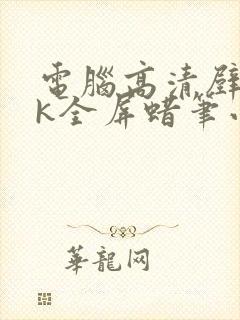 電腦高清壁
K全屏蜡筆小
華龍网